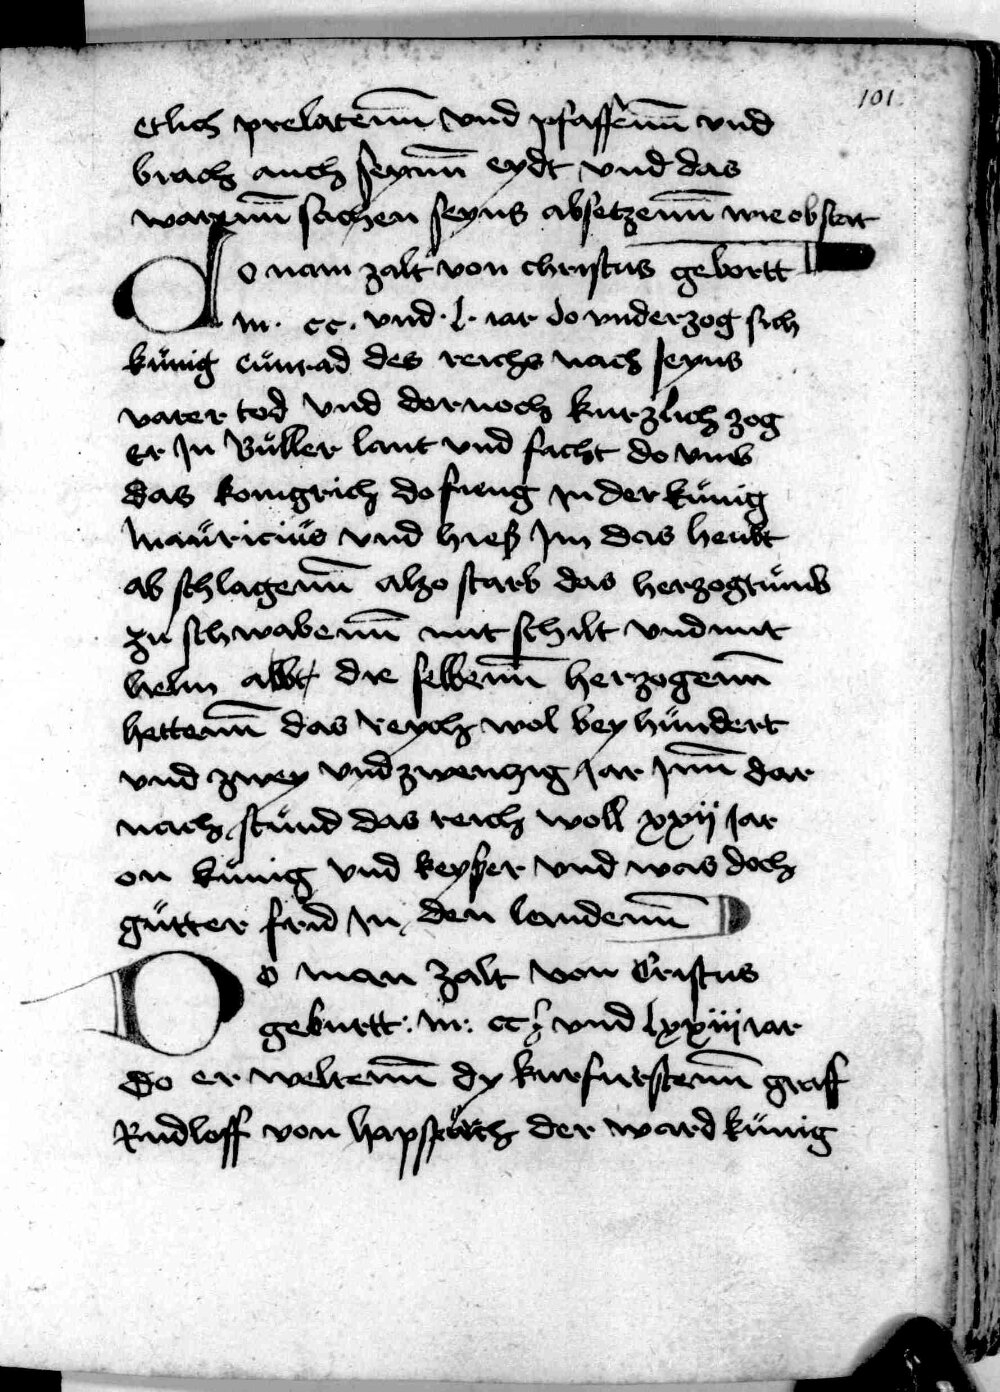 101
etlich prelatenn vnd pfaffenn vnd
brach auch seynn eydt vnd das
warenn sachen seyns absetzenn wie obstat
Do nam zalt von christus geburtt
m. cc. vnd. l. iar do vnderzog sich
kunig cunrad des reichs nach seyns
vater tod vnd dornoch kurzlich zog
er In Buller lant vnd facht do vmb
das konigrich do fieng in der kunig
Mauricius vnd hieß Im das heubt
ab schlagenn also starb das herzogtumb
zu schwabenn mit schilt vnd mit
helm abbt die selbenn herzogenn
hettenn das reych wol bey hundert
vnd zwey vnd zwenzig Jar Inn dar
nach stund das reich woll xxij Jar
on kunig vnd keyser vnd was doch
gutter frid In den landenn
Do man zalt von Cristus
geburtt. m. cc vnd lxxiij iar
do er weltenn dy kurfurstenn graff
Rudloff von hapspurch der ward kunig